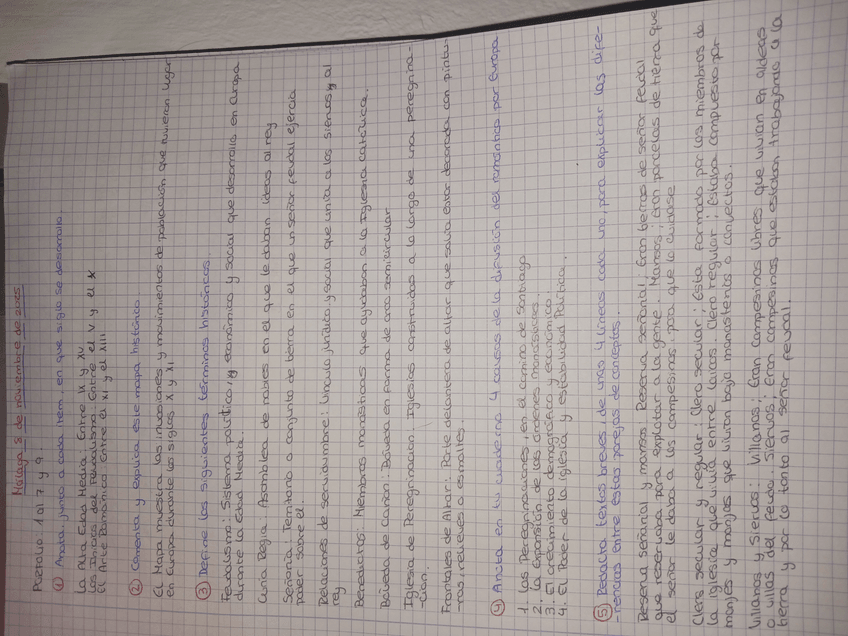 Málaga 5 de noviembre de 2025
Porfolio 1 al 7 y 9.
① Anota junto a cada ítem, en que siglo se desarrolla
La Alta Edad Media: Entre IX y XV
Los Inicios del Feudalismo: Entre el V y el X
El Arte Románico: Entre el XI y el XIII
② Comenta y explica este mapa histórico.
El Mapa muestra las invasiones y movimientos de población que tuvieron lugar
en Europa durante los siglos X y XI
③ Define los siguientes términos históricos.
Feudalismo: Sistema político, económico y social que desarrolla en Europa
durante la Edad Media.
Curia Regia: Asamblea de nobles en el que le daban ideas al rey
Señorío: Territorio o conjunto de tierra en el que un señor feudal ejercía
poder sobre él.
Relaciones de servidumbre: Vínculo jurídico y social que unía a los siervos y al
rey
Benedictos: Miembros monásticos que ayudaban a la Iglesia católica.
Bóveda de Cañón: Bóveda en forma de arco semicircular
Iglesia de Peregrinación: Iglesias construidas a lo largo de una peregrina-
-ción.
Frontales de Altar: Parte delantera de altar que solía estar decorada con pintu-
-ras, relieves o esmaltes.
④ Anota en tu cuaderno 4 causas de la difusión del románico por Europa
1. Las Peregrinaciones, en el camino de Santiago
2. La expansión de las órdenes monásticas.
3. El crecimiento demográfico y económico.
4. El Poder de la Iglesia y estabilidad Política.
⑤ Redacta textos breves, de unas 4 líneas cada uno, para explicar las dife-
-rencias entre estas parejas de conceptos.
Reserva señorial y mansos: Reserva señorial; Eran tierras de señor feudal
que reservaba para explotar a la gente. Mansos; Eran parcelas de tierra que
el señor le daba a los campesinos, para que lo cuidase
Clero secular y regular: Clero secular; Esta formado por los miembros de
la Iglesia que vivía entre laicos. Clero regular; Estaba compuesto por
monjes y monjas que vivían bajo monasterios o convectos.
Villanos y Siervos: Villanos; Eran campesinos libres que vivían en aldeas
o villas del feudo. Siervos; Eran campesinos que estaban trabajando a la
tierra y por lo tanto al señor feudal.